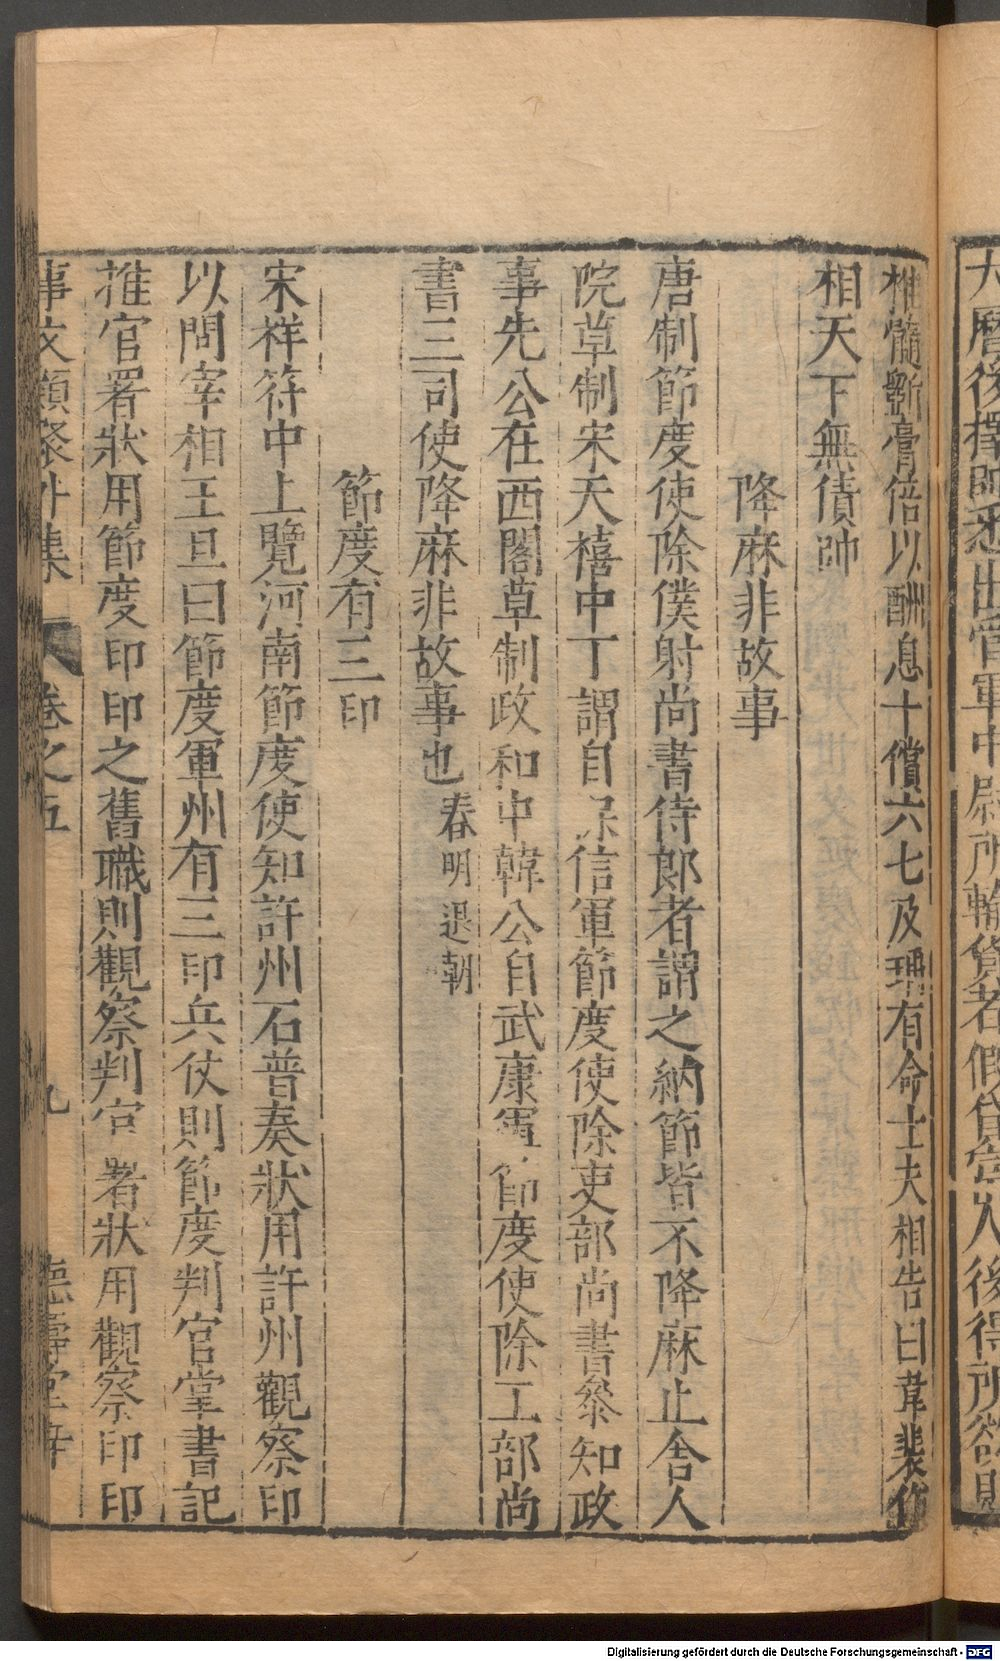 大曆後擇帥悉出宦軍中尉所輸貨者假貸富人後得所欲則
椎髓斵膏倍以酬息十償六七及瑀有命士夫相告曰韋裴作
相天下無債帥
降麻非故事
唐制節度使除僕射尚書侍郎者謂之納節皆不降麻止舍人
院草制宋天禧中丁謂自保信軍節度使除吏部尚書叅知政
事先公在西閣草制政和中韓公自武康軍節度使除工部尚
書三司使降麻非故事也春明退朝
節度有三印
宋祥符中上覽河南節度使知許州石普奏狀用許州觀察印
以問宰相王旦曰節度軍州有三印兵仗則節度判官掌書記
推官署狀用節度印印之舊職則觀察判官署狀用觀察印印
事文類聚外集 卷之五 九 德壽堂梓
Digitalisierung gefördert durch die Deutsche Forschungsgemeinschaft - DFG